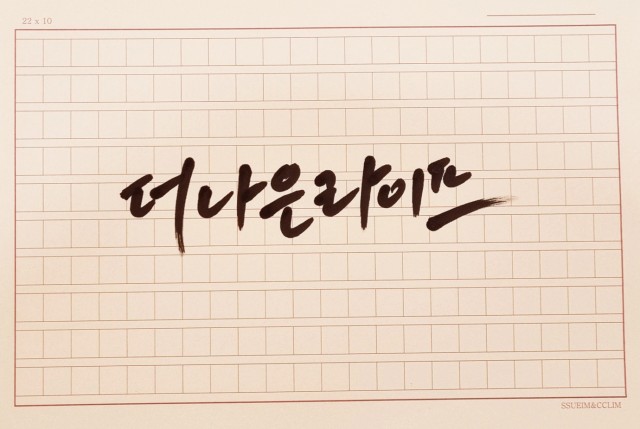 22 x 10
더나은라이프
SSUEIM&CCLIM